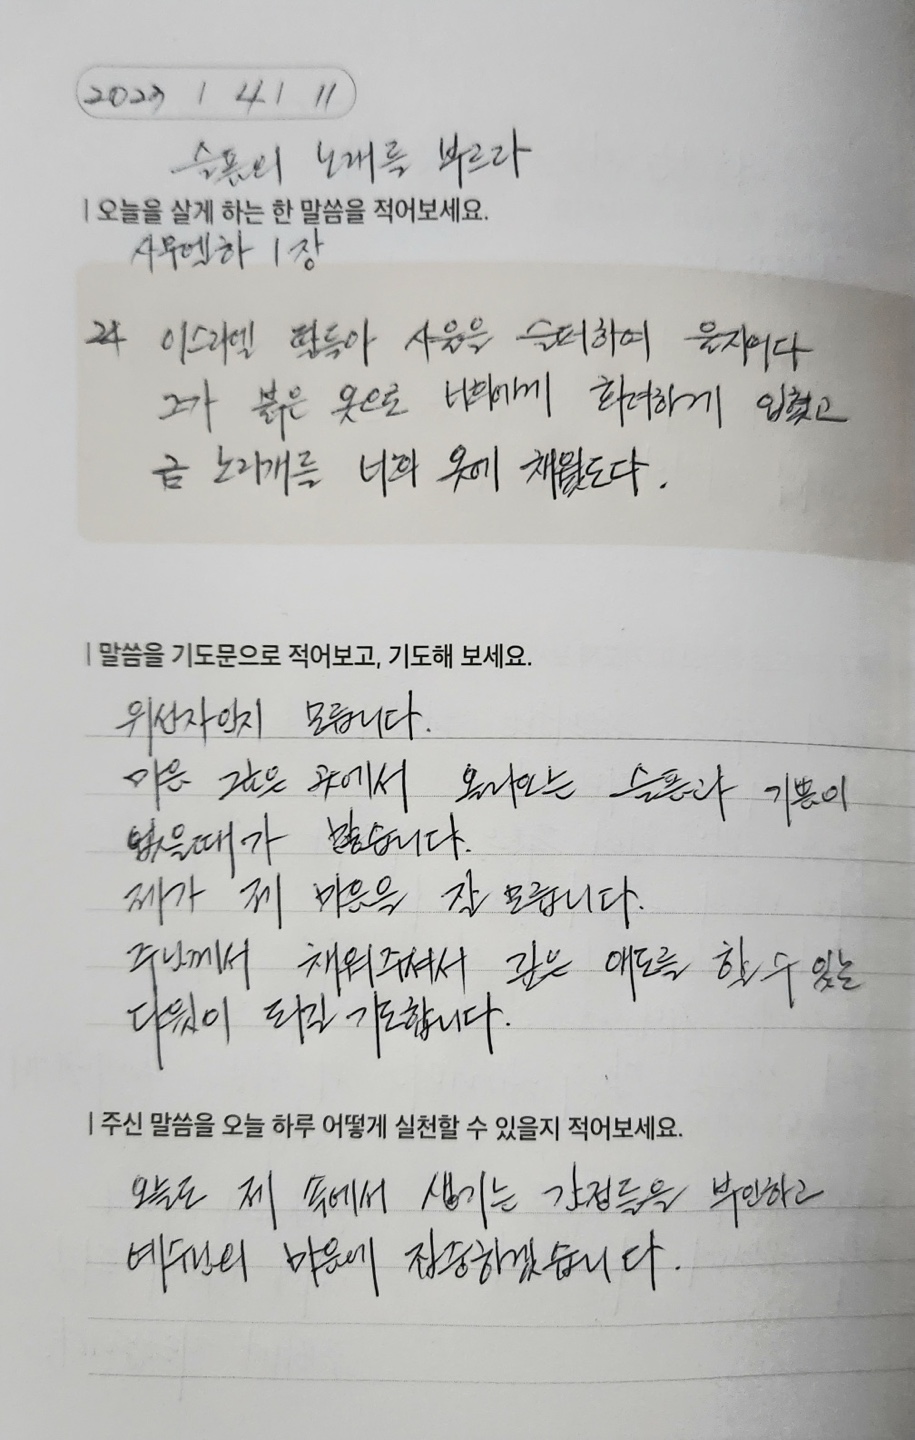 2023 / 4 / 11
슬픔의 노래를 부르라
| 오늘을 살게 하는 한 말씀을 적어보세요.
사무엘하 1장
24 이스라엘 딸들아 사울을 슬퍼하여 울지어다
그가 붉은 옷으로 너희에게 화려하게 입혔고
금 노리개를 너희 옷에 채웠도다.
| 말씀을 기도문으로 적어보고, 기도해 보세요.
위선자인지 모릅니다.
마음 깊은 곳에서 올라오는 슬픔과 기쁨이
없을때가 많습니다.
제가 제 마음을 잘 모릅니다.
주님께서 채워주셔서 깊은 애도를 할 수 있는
다윗이 되길 기도합니다.
| 주신 말씀을 오늘 하루 어떻게 실천할 수 있을지 적어보세요.
오늘도 제 속에서 생기는 감정들을 부인하고
예수님의 마음에 집중하겠습니다.